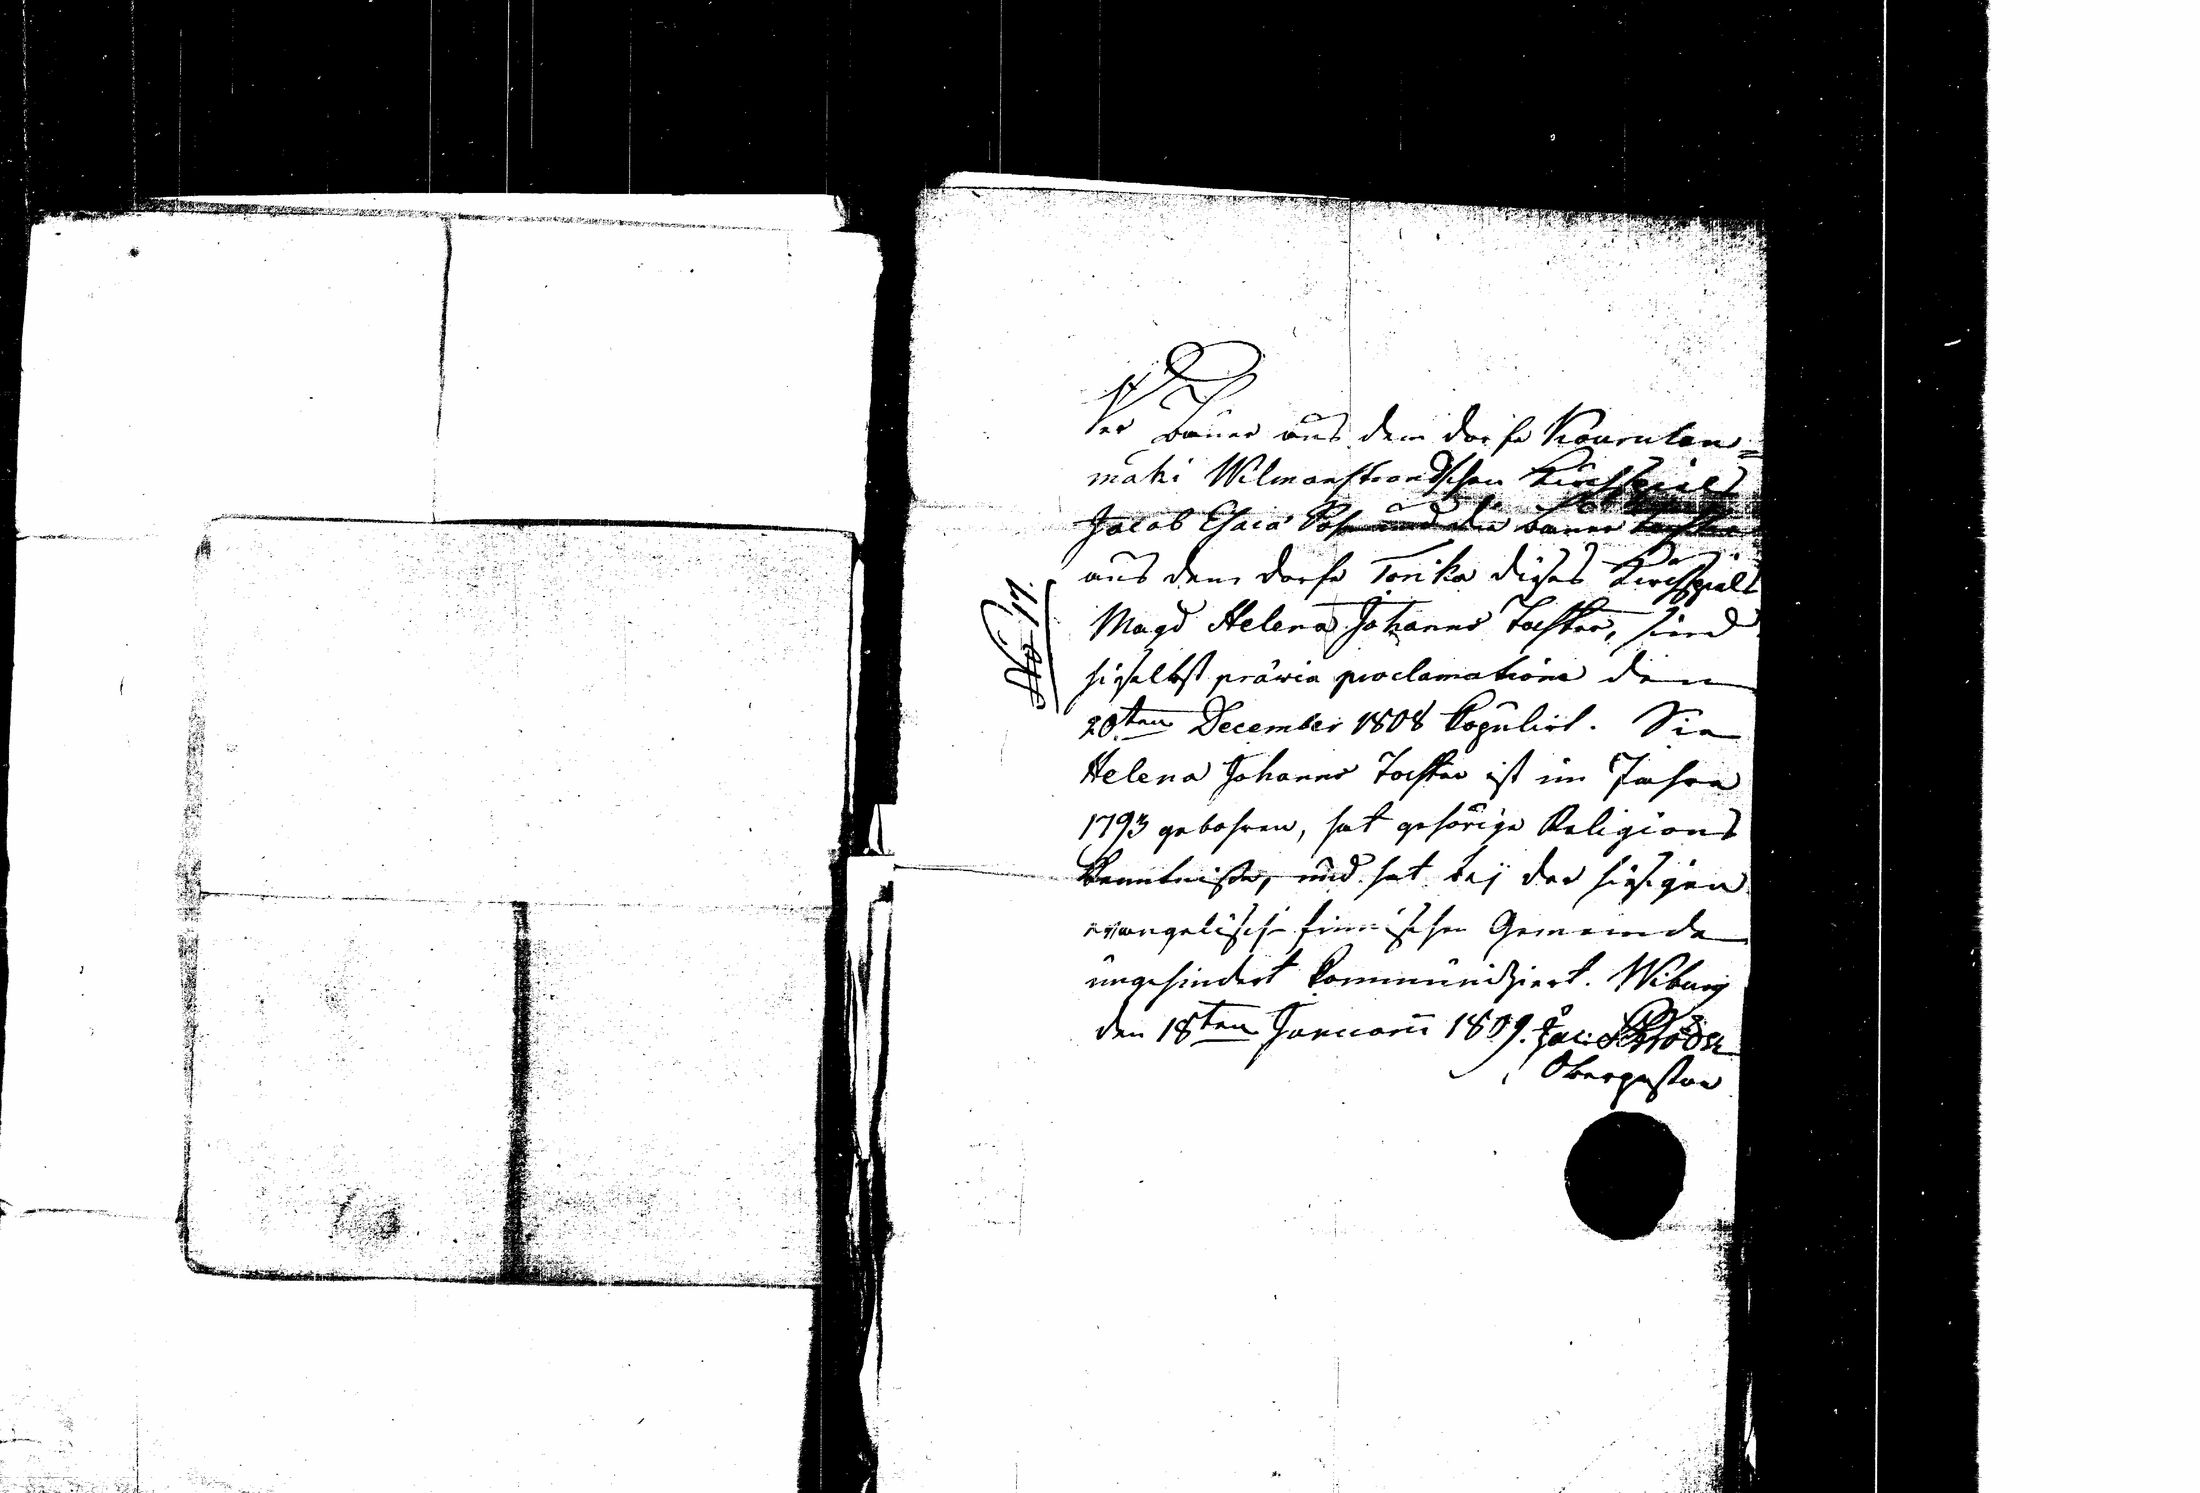 Der Bauer aus dem Dorfe Kourulan=
mäki Wilmanstrandschen Kirchspiels
Jacob Esaia Sohn und die Bauer Tochter
aus dem Dorfe Torika dieses Kirchspiels
Magd Helena Johanns Tochter, sind
No 17.
hieselbst prävia proclamatione den
20ten December 1808 kopulirt. Die
Helena Johanns Tochter ist im Jahre
1793 gebohren, hat gehörige Religions
Kenntnisse, und hat bej der hiesigen
evangelisch finnischen Gemeinde
ungehindert kommuniziert. Wiburg
den 18ten Januarii 1809.
Oberpastor